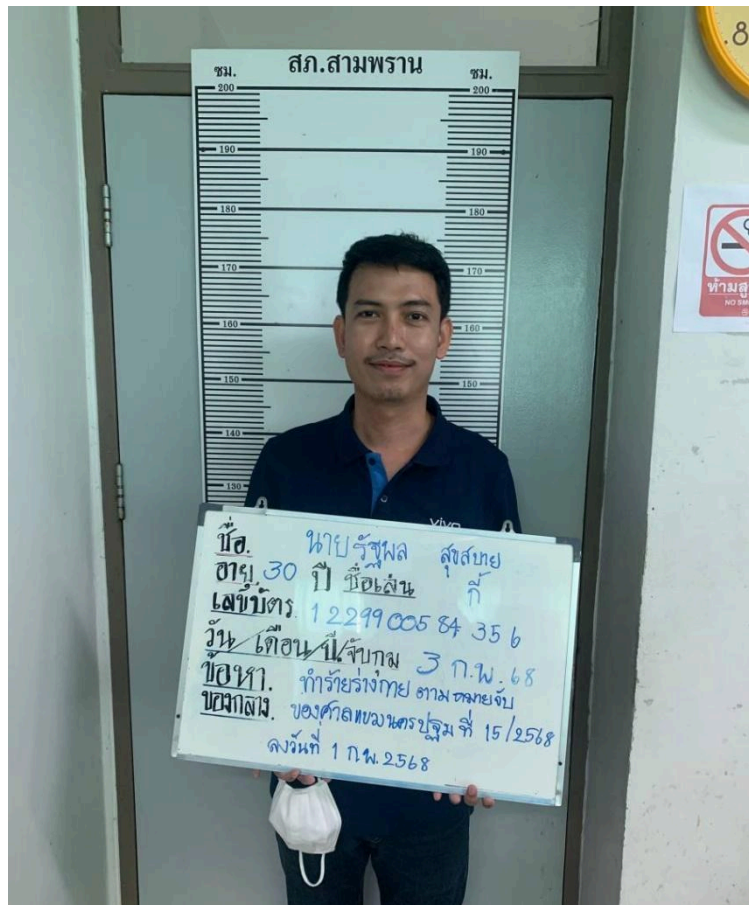 สภ.สามพราน
ซม.
ซม.
200
200
190
190
180
180
170
170
160
160
150
150
140
130
.8
ห้ามสู
NO SM
vivo
ชื่อ. นายรัฐพล สุขสบาย
อายุ 30 ปี ชื่อเล่น กี้
เลขบัตร. 1 2299 005 84 35 6
วัน/เดือน/ปี/จับกุม 3 ก.พ. 68
ข้อหา. ทำร้ายร่างกาย ตามหมายจับ
ของกลาง. ของศาลแขวงนครปฐม ที่ 15/2568
ลงวันที่ 1 ก.พ. 2568